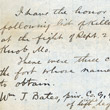 I have the honor
following list of killed
at the fight of Sept. 2
Knob, Mo.
There were three o
the foot whose names
to obtain.
Wm. T. Bates, priv. Co. F,